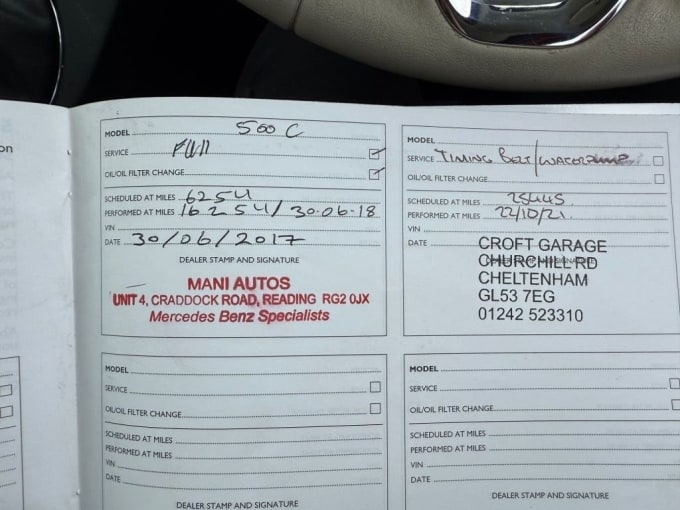 on
MODEL 500 C
SERVICE Full
OIL/OIL FILTER CHANGE
SCHEDULED AT MILES 6254
PERFORMED AT MILES 16254/30-06-18
VIN
DATE 30/06/2017
DEALER STAMP AND SIGNATURE
MANI AUTOS
UNIT 4, CRADDOCK ROAD, READING RG2 0JX
Mercedes Benz Specialists
MODEL
SERVICE TIMING BELT/WATERPUMP
OIL/OIL FILTER CHANGE
SCHEDULED AT MILES 25445
PERFORMED AT MILES 22/10/21.
VIN
DATE
DEALER STAMP AND SIGNATURE
CROFT GARAGE
CHURCHILL RD
CHELTENHAM
GL53 7EG
01242 523310
MODEL
SERVICE
OIL/OIL FILTER CHANGE
SCHEDULED AT MILES
PERFORMED AT MILES
VIN
DATE
DEALER STAMP AND SIGNATURE
MODEL
SERVICE
OIL/OIL FILTER CHANGE
SCHEDULED AT MILES
PERFORMED AT MILES
VIN
DATE
DEALER STAMP AND SIGNATURE